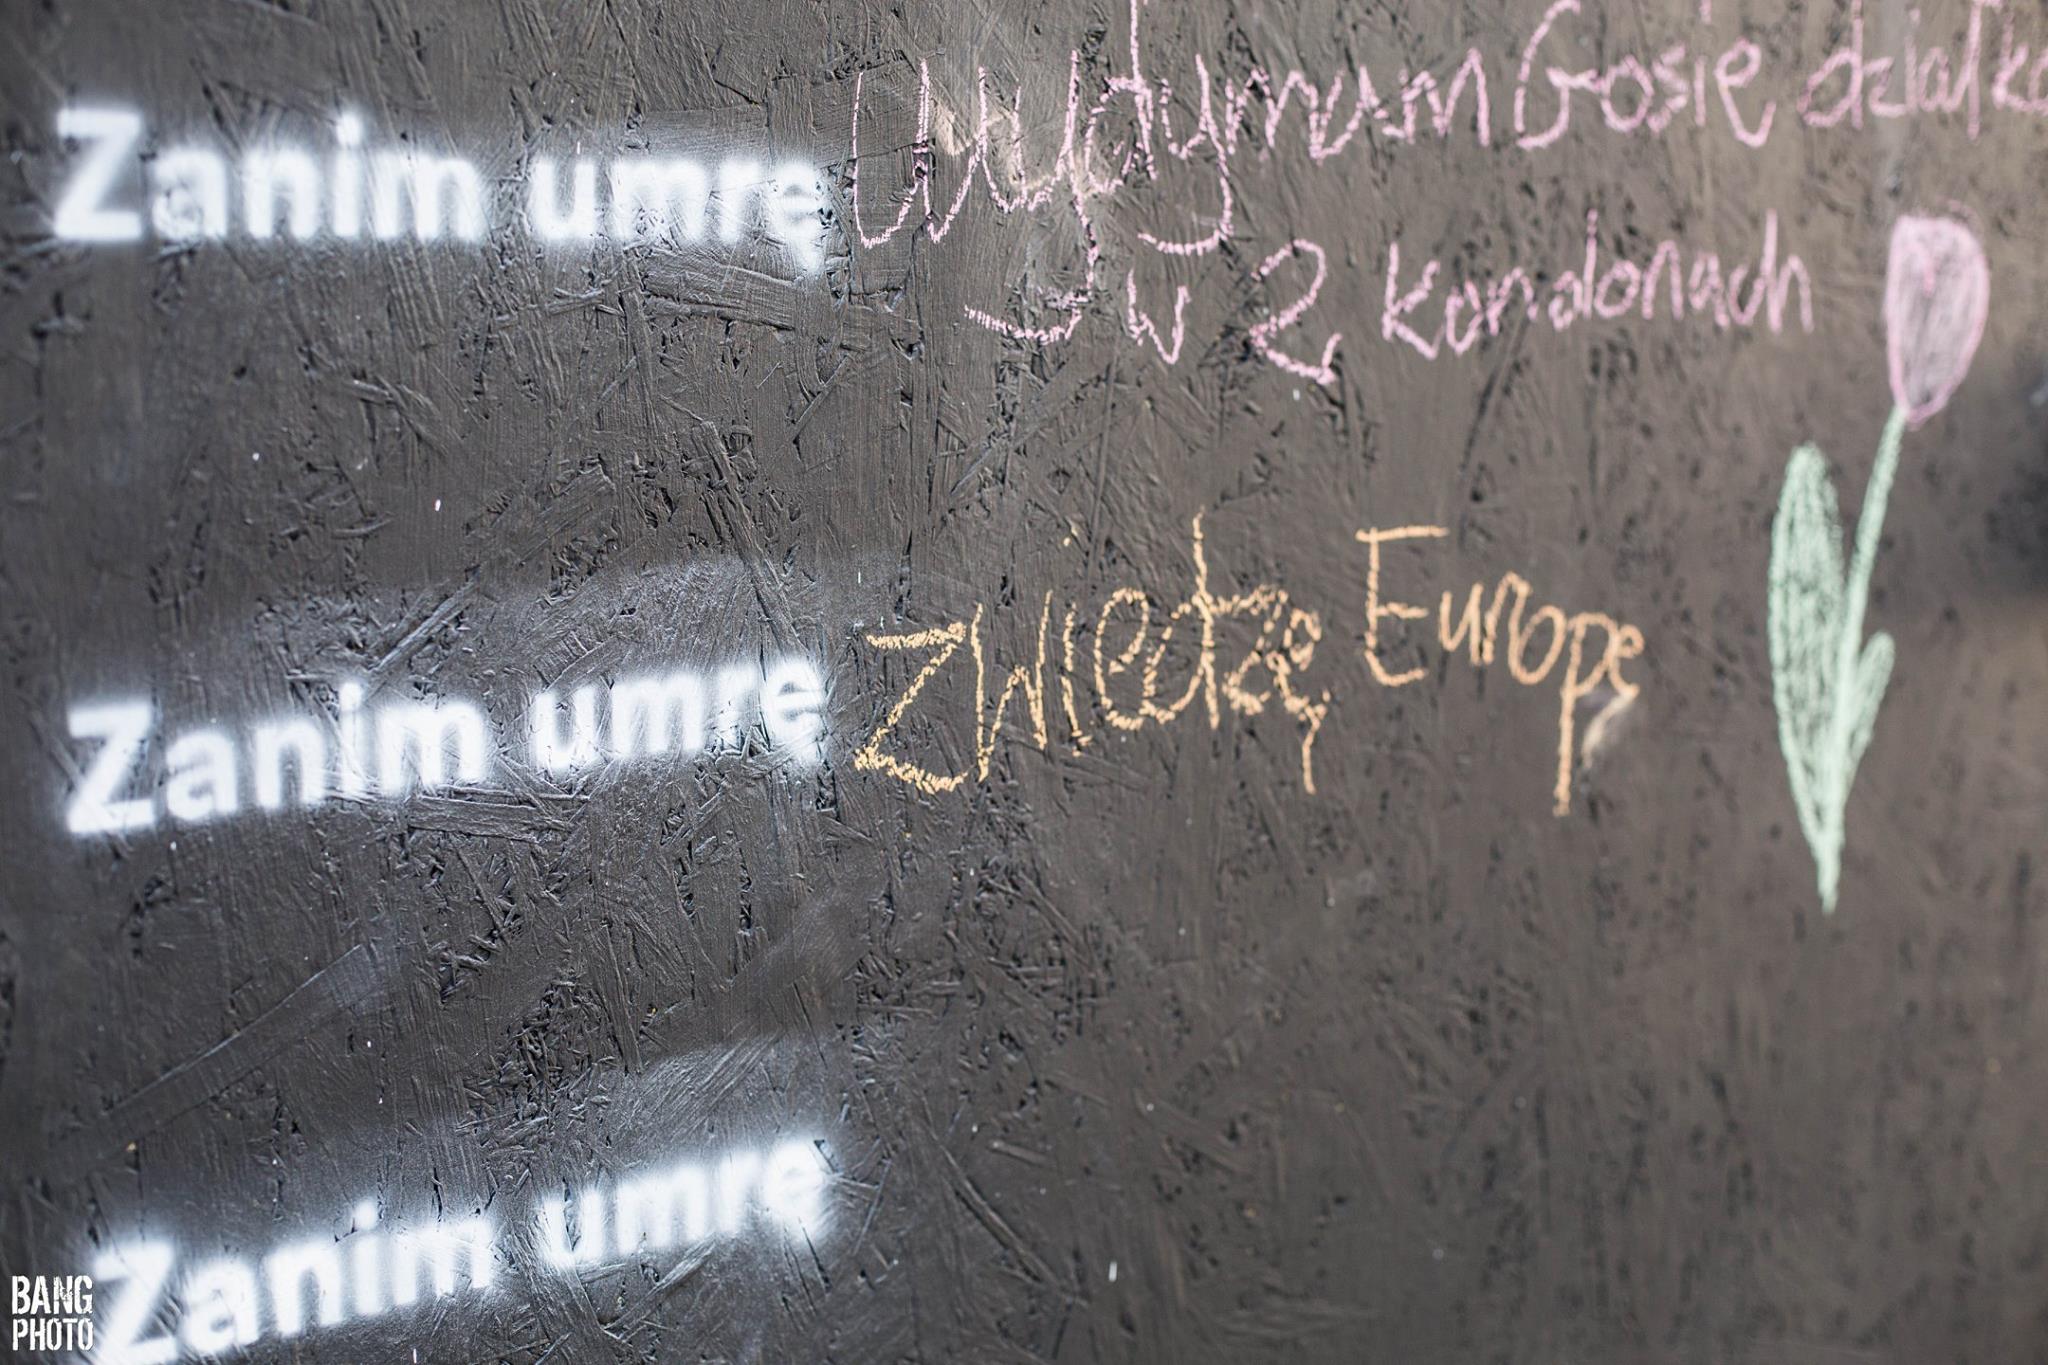 Zanim umrę wydymam Gosię działką
w 2 kondonach
Zanim umrę zwiedzę Europę
Zanim umrę
BANG
PHOTO